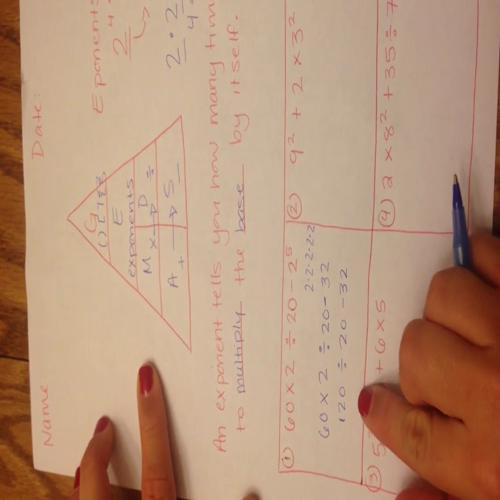 Name
Date:
Eponents
2⁴
2 · 2
4
G
E
exponents
M D
x → ÷
A → S
+ –
An exponent tells you how many
to multiply the base by itself.
① 60 x 2 ÷ 20 - 2⁵
2·2·2·2·2
60 x 2 ÷ 20 - 32
120 ÷ 20 - 32
② 9² + 2 x 3²
③ 5 + 6 x 5
④ 2 x 8² + 35 ÷ 7